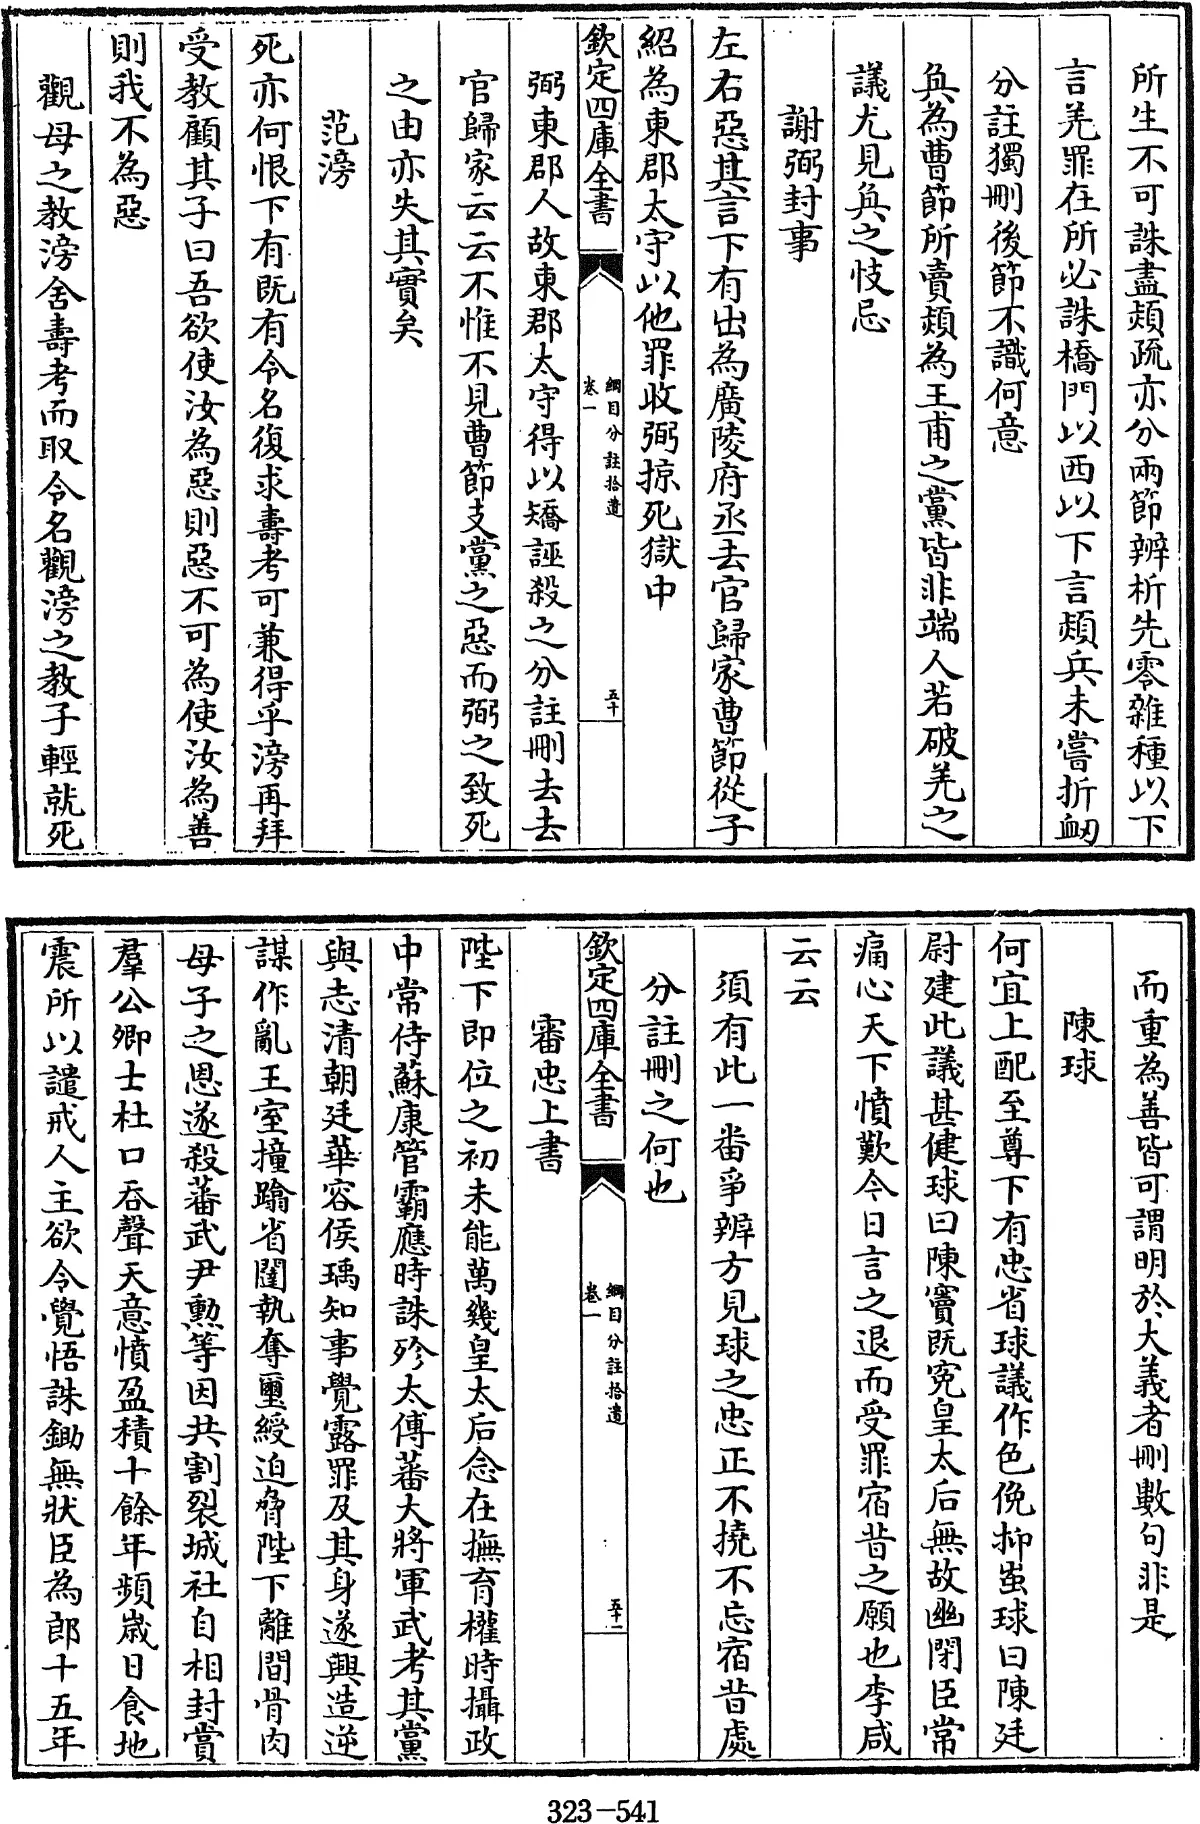 所生不可誅盡熲疏亦分兩節辨析先零雜種以下
言羌罪在所必誅橋門以西以下言熲兵未嘗折衂
分註獨刪後節不識何意
奐為曹節所賣熲為王甫之黨皆非端人若破羌之
議尤見奐之忮忌
謝弼封事
左右惡其言下有出為廣陵府丞去官歸家曹節從子
紹為東郡太守以他罪收弼掠死獄中
欽定四庫全書
綱目分註拾遺
卷一
五十
弼東郡人故東郡太守得以矯誣殺之分註刪去去
官歸家云云不惟不見曹節支黨之惡而弼之致死
之由亦失其實矣
范滂
死亦何恨下有既有令名復求壽考可兼得乎滂再拜
受教顧其子曰吾欲使汝為惡則惡不可為使汝為善
則我不為惡
觀母之教滂舍壽考而取令名觀滂之教子輕就死
而重為善皆可謂明於大義者刪數句非是
陳球
何宜上配至尊下有忠省球議作色俛抑蚩球曰陳廷
尉建此議甚健球曰陳竇既寃皇太后無故幽閉臣常
痛心天下憤歎今日言之退而受罪宿昔之願也李咸
云云
須有此一番爭辨方見球之忠正不撓不忘宿昔處
分註刪之何也
欽定四庫全書
綱目分註拾遺
卷一
五十一
審忠上書
陛下即位之初未能萬幾皇太后念在撫育權時攝政
中常侍蘇康管霸應時誅殄太傅蕃大將軍武考其黨
與志清朝廷華容侯瑀知事覺露罪及其身遂興造逆
謀作亂王室撞蹹省闥執奪璽綬迫脅陛下離間骨肉
母子之恩遂殺蕃武尹勲等因共割裂城社自相封賞
羣公卿士杜口吞聲天意憤盈積十餘年頻歲日食地
震所以譴戒人主欲令覺悟誅鋤無狀臣為郎十五年
323-541